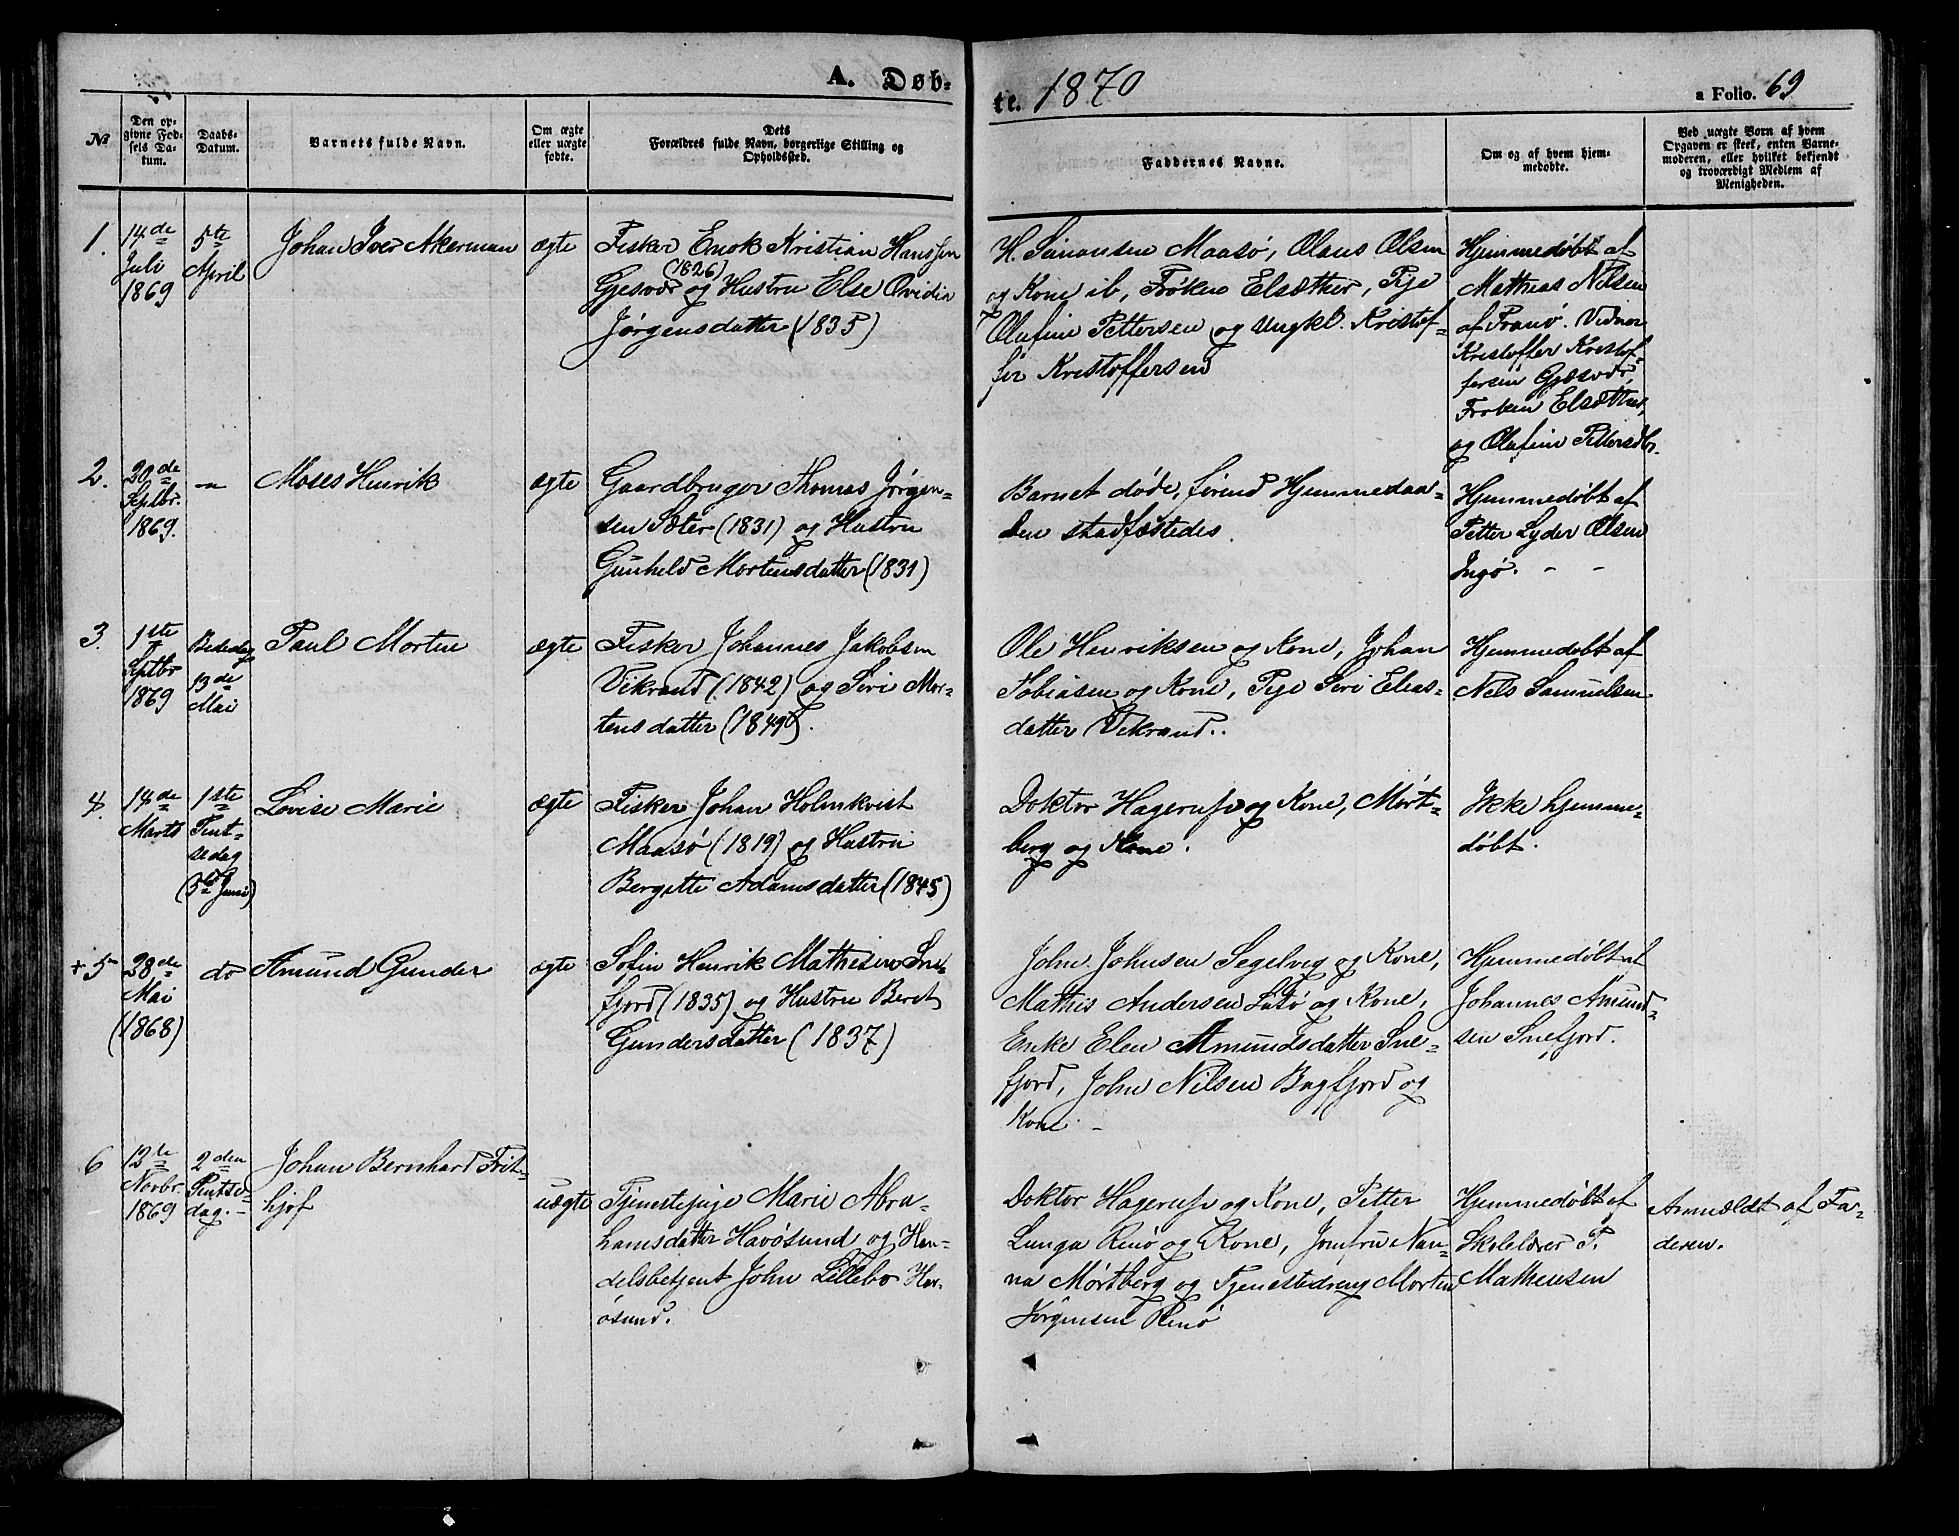 A. Døb-
te. 1870
a Folio. 69
№
Den op-
givne Fød-
sels Da-
tum.
Daabs-
Datum.
Barnets fulde Navn.
Om ægte
eller uægte
fødte.
Dets
Forældres fulde Navn, borgerlige Stilling og
Opholdssted.
Faddernes Navne.
Om og af hvem hjem-
medøbte.
Ved uægte Born af hvem
Opgaven er skeet, enten Barne-
moderen, eller hvilket bekjendt
og troværdigt Medlem af
Menigheden.
1.
14de
Juli
1869
5te
April
Johan Iver Akerman
ægte
Fisker Enok Kristian Hanssen
(1826)
Gjesvær og Hustru Else Ovidia
Jørgensdatter (1835)
H. Simonsen Maasø, Olaus Olsen
og Kone ib, Frøken Elsæther, Pige
Olufine Pettersen og Ungkl. Kristof-
fer Kristoffersen
Hjemmedøbt af
Mathias Nilsen
af Franø. Vidner
Kristoffer Kristof-
fersen Gjesvær,
Frøken Elsæther,
og Olufine Pettersdtr.
2.
29de
Septbr.
1869.
-"-
Moses Henrik
ægte
Gaardbruger Thomas Jørgen-
sen Sæter (1831) og Hustru
Gunhild Mortensdatter (1831)
Barnet døde, førend Hjemmedaa-
ben stadfæstedes.
Hjemmedøbt af
Petter Lyder Olsen
Ingø. - -
3.
1ste
Septbr
1869
Bededag
13de
Mai
Paul Morten
ægte
Fisker Johannes Jakobsen
Vikrand (1842) og Siri Mor-
tensdatter (1849).
Ole Henriksen og Kone, Johan
Tobiasen og Kone, Pige Siri Elias-
datter Vikrand..
Hjemmedøbt af
Nils Samuelsen
4.
14de
Marts
1ste
Pint-
sedag
(5te Juni)
Lovise Marie
ægte
Fisker Johan Holmkvist
Maasø (1819) og Hustru
Bergitte Adamsdatter (1845)
Doktor Hagerup og Kone, Mørt-
berg og Kone.
Ikke hjemme-
døbt.
+ 5
28de
Mai
(1868)
do
Amund Gunder
ægte
Sofin Henrik Mathisen Sne-
fjord (1835) og Hustru Berit
Gundersdatter (1837)
John Johnsen Segelvig og Kone,
Mathis Andersen Latø og Kone,
Enke Elen Amundsdatter Sne-
fjord, John Nilsen Bagfjord og
Kone -
Hjemmedøbt af
Johannes Amund-
sen Snefjord.
6
12te
Novbr.
1869
2den
Pintse-
dag.-
Johan Bernhard Frit-
hjof
uægte
Tjenestepige Marie Abra-
hamsdatter Havøsund og Han-
delsbetjent John Lillebo Hav-
øsund.
Doktor Hagerup og Kone, Petter
Lunga Renø og Kone, Jomfru Nan-
na Mørtberg og Tjenestedreng Morten
Jørgensen Renø
Hjemmedøbt af
Skolelærer P.
Matheusen
Anmældt af Fa-
deren.